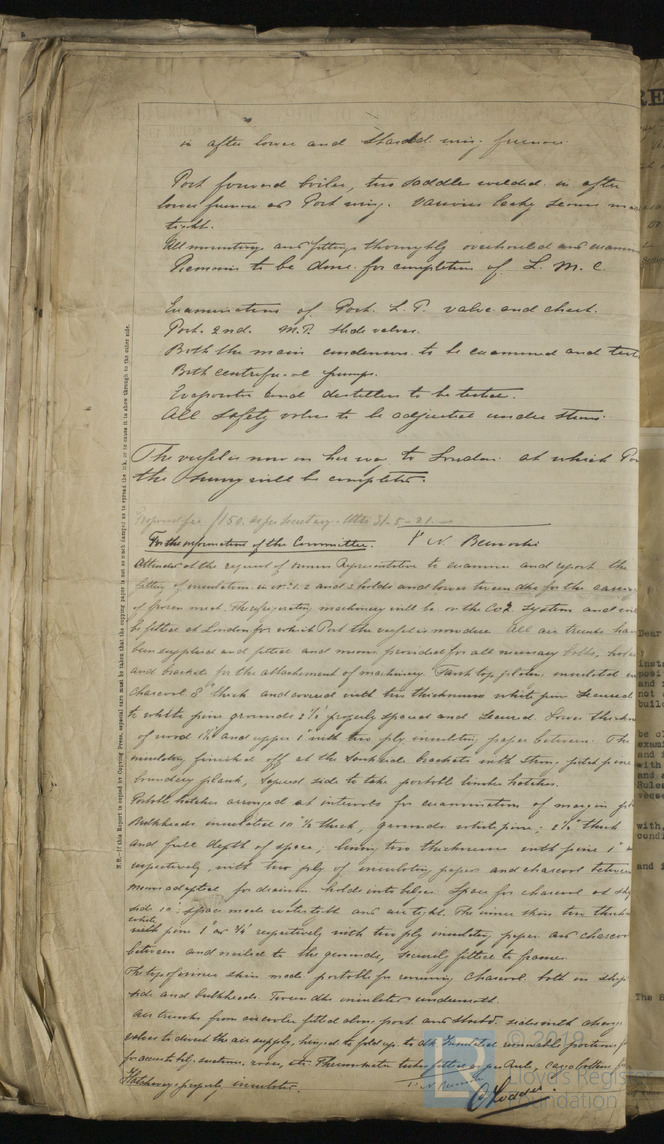 in after lower and Starbd. wing furnace.
Port forward boiler, two saddles welded in after
lower furnace and Port wing. Various leaky seams made
tight.
All mountings and fittings thoroughly overhauled and examined
Remains to be done for completion of L. M. C.
Examination of Port. L. P. valve and chest.
Port. 2nd. M.P. slide valves.
Both the main condensers to be examined and tested
Both centrifugal pumps.
Evaporator and distillers to be tested.
All Safety valves to be adjusted under steam.
The vessel is now on her way to London at which Port
the survey will be completed.
Proposed fee £150. as per Secretary's letter 31-5-21
For the information of the Committee.
Attended at the request of owners Representative to examine and report the
fitting of insulation in No. 1. 2 and 3 holds and lower tween dks for the carriage
of frozen meat. The refrigerating machinery will be on the Co2 System and will
be fitted at London for which Port the vessel is now due. All air trunks have
been supplied and fitted and means provided for all necessary bolts,
and brackets for the attachment of machinery. Tank top plating insulated
charcoal 8" thick and covered with two thicknesses white pine secured
to white pine grounds 2½" properly spaced and secured. Lower thickness
of wood 1¼ and upper 1" with two ply insulating paper between. The
insulating finished off at the tankside brackets with
boundary plank, tapered side to take portable limber hatches.
Portable hatches arranged at intervals for examination of margin
Bulkheads insulated 10½ thick, grounds white pine; 2½ thick
and full depth of space; lining two thicknesses white pine 1"
respectively, with two ply of insulating paper and charcoal between
means adopted for draining holds into bilges. Space for charcoal at ship
side 10" space made watertight and air tight. The inner skin two thickness
white
pine 1" or ¾" respectively with two ply insulating paper and charcoal
between and nailed to the grounds, securely fitted to frames.
The top of inner skin made portable for renewing charcoal both on ship
side and bulkheads. Tween dks insulated underneath.
Air trunks from air cooler fitted along port and starbd. sides with
valves to divert the air supply, hinged to fold up to dk. Insulated removable portions
for accessibly, suctions, roses, etc. Thermometer tubes fitted as per Rule, cargo battens
Hatchways properly insulated.
N.B.—If this Report is copied by Copying Press, especial care must be taken that the copying paper is not so much damped as to spread the ink, or to cause it to show through to the outer side.
RE
Dear
and
not
be
exami
and
with
and
Rules
with,
condi
and
The
© 2019
Lloyd's Register
Foundation